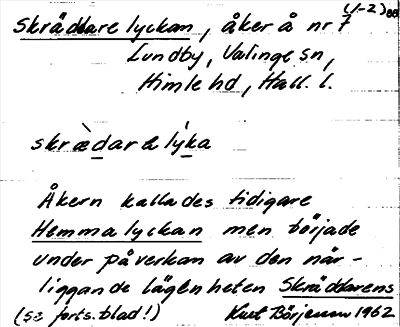 (1-2)
Skräddare lyckan, åker å nr 7
Lundby, Valinge sn,
Himle hd, Hall. l.
skræ̀dara lýka
Åkern kallades tidigare
Hemmalyckan men började
under påverkan av den när-
liggande lägenheten Skräddarens
(se forts. blad!) Kurt Börjesson 1962